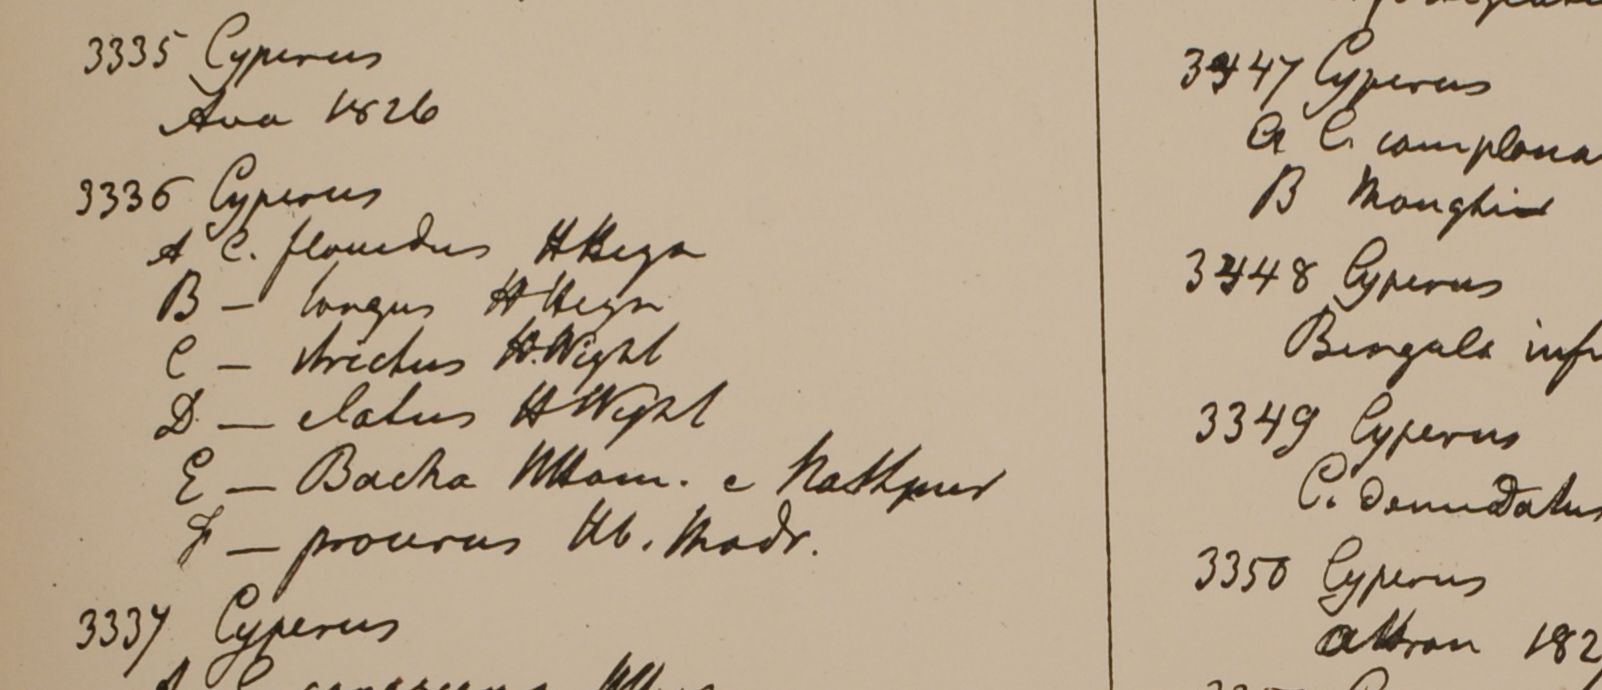 3335 Cyperus
Ava 1826
3336 Cyperus
A C. floridus HHeyn
B — longus HHeyn
C — strictus H.Wight
D — elatus HWight
E — Bacha HHam. e Nathpur
F — procerus Hb. Madr.
3337 Cyperus
3447 Cyperus
a C. complana
B Monghir
3448 Cyperus
Bengala inf
3349 Cyperus
C. denudatus
3350 Cyperus
Attran 182